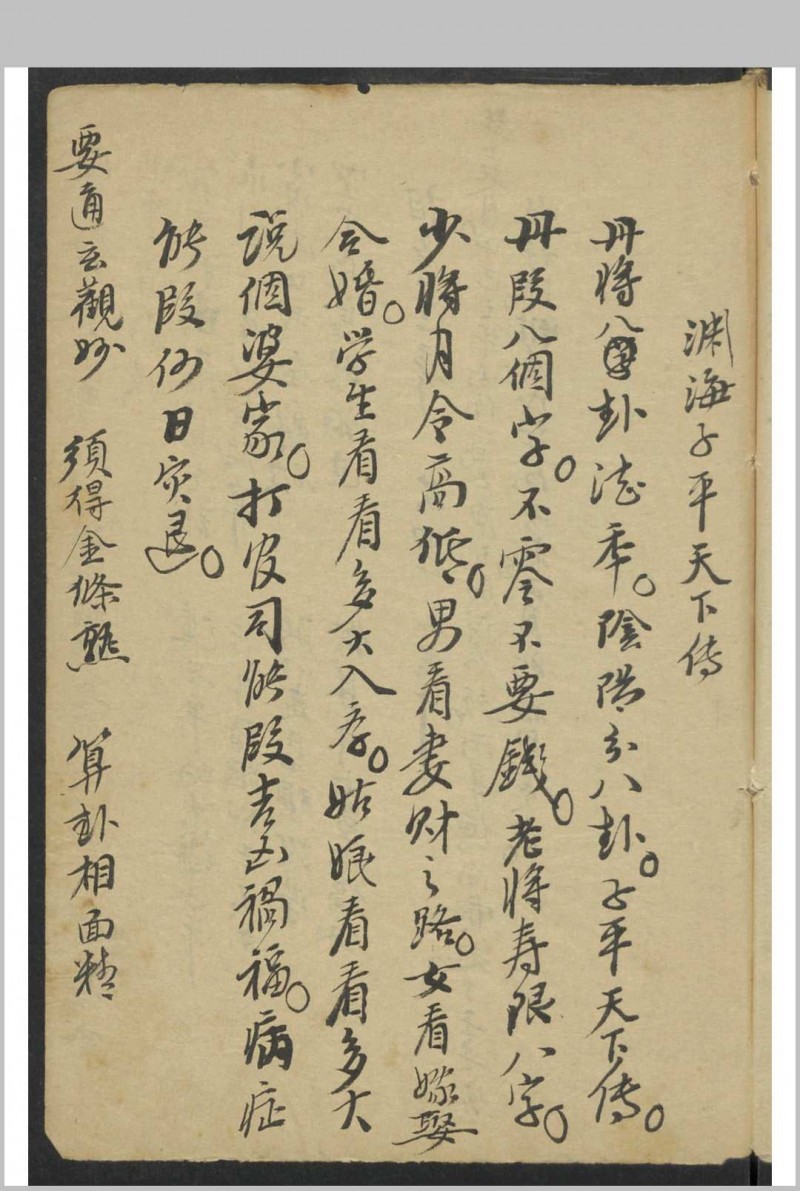 渊海子平天下传
丹将八卦法乖。陰陽分八卦。子平天下傳。
丹段八個字。不零不要錢。老將寿限八字。
少将月令高低。男看妻财之路。女看嫁娶
合婚。学生看看多大入序。姑娘看看多大
説個婆家。打官司能段吉凶禍福。病症
能段何日灾退。
要通玄觀妙 須得金條熟 算卦相面精